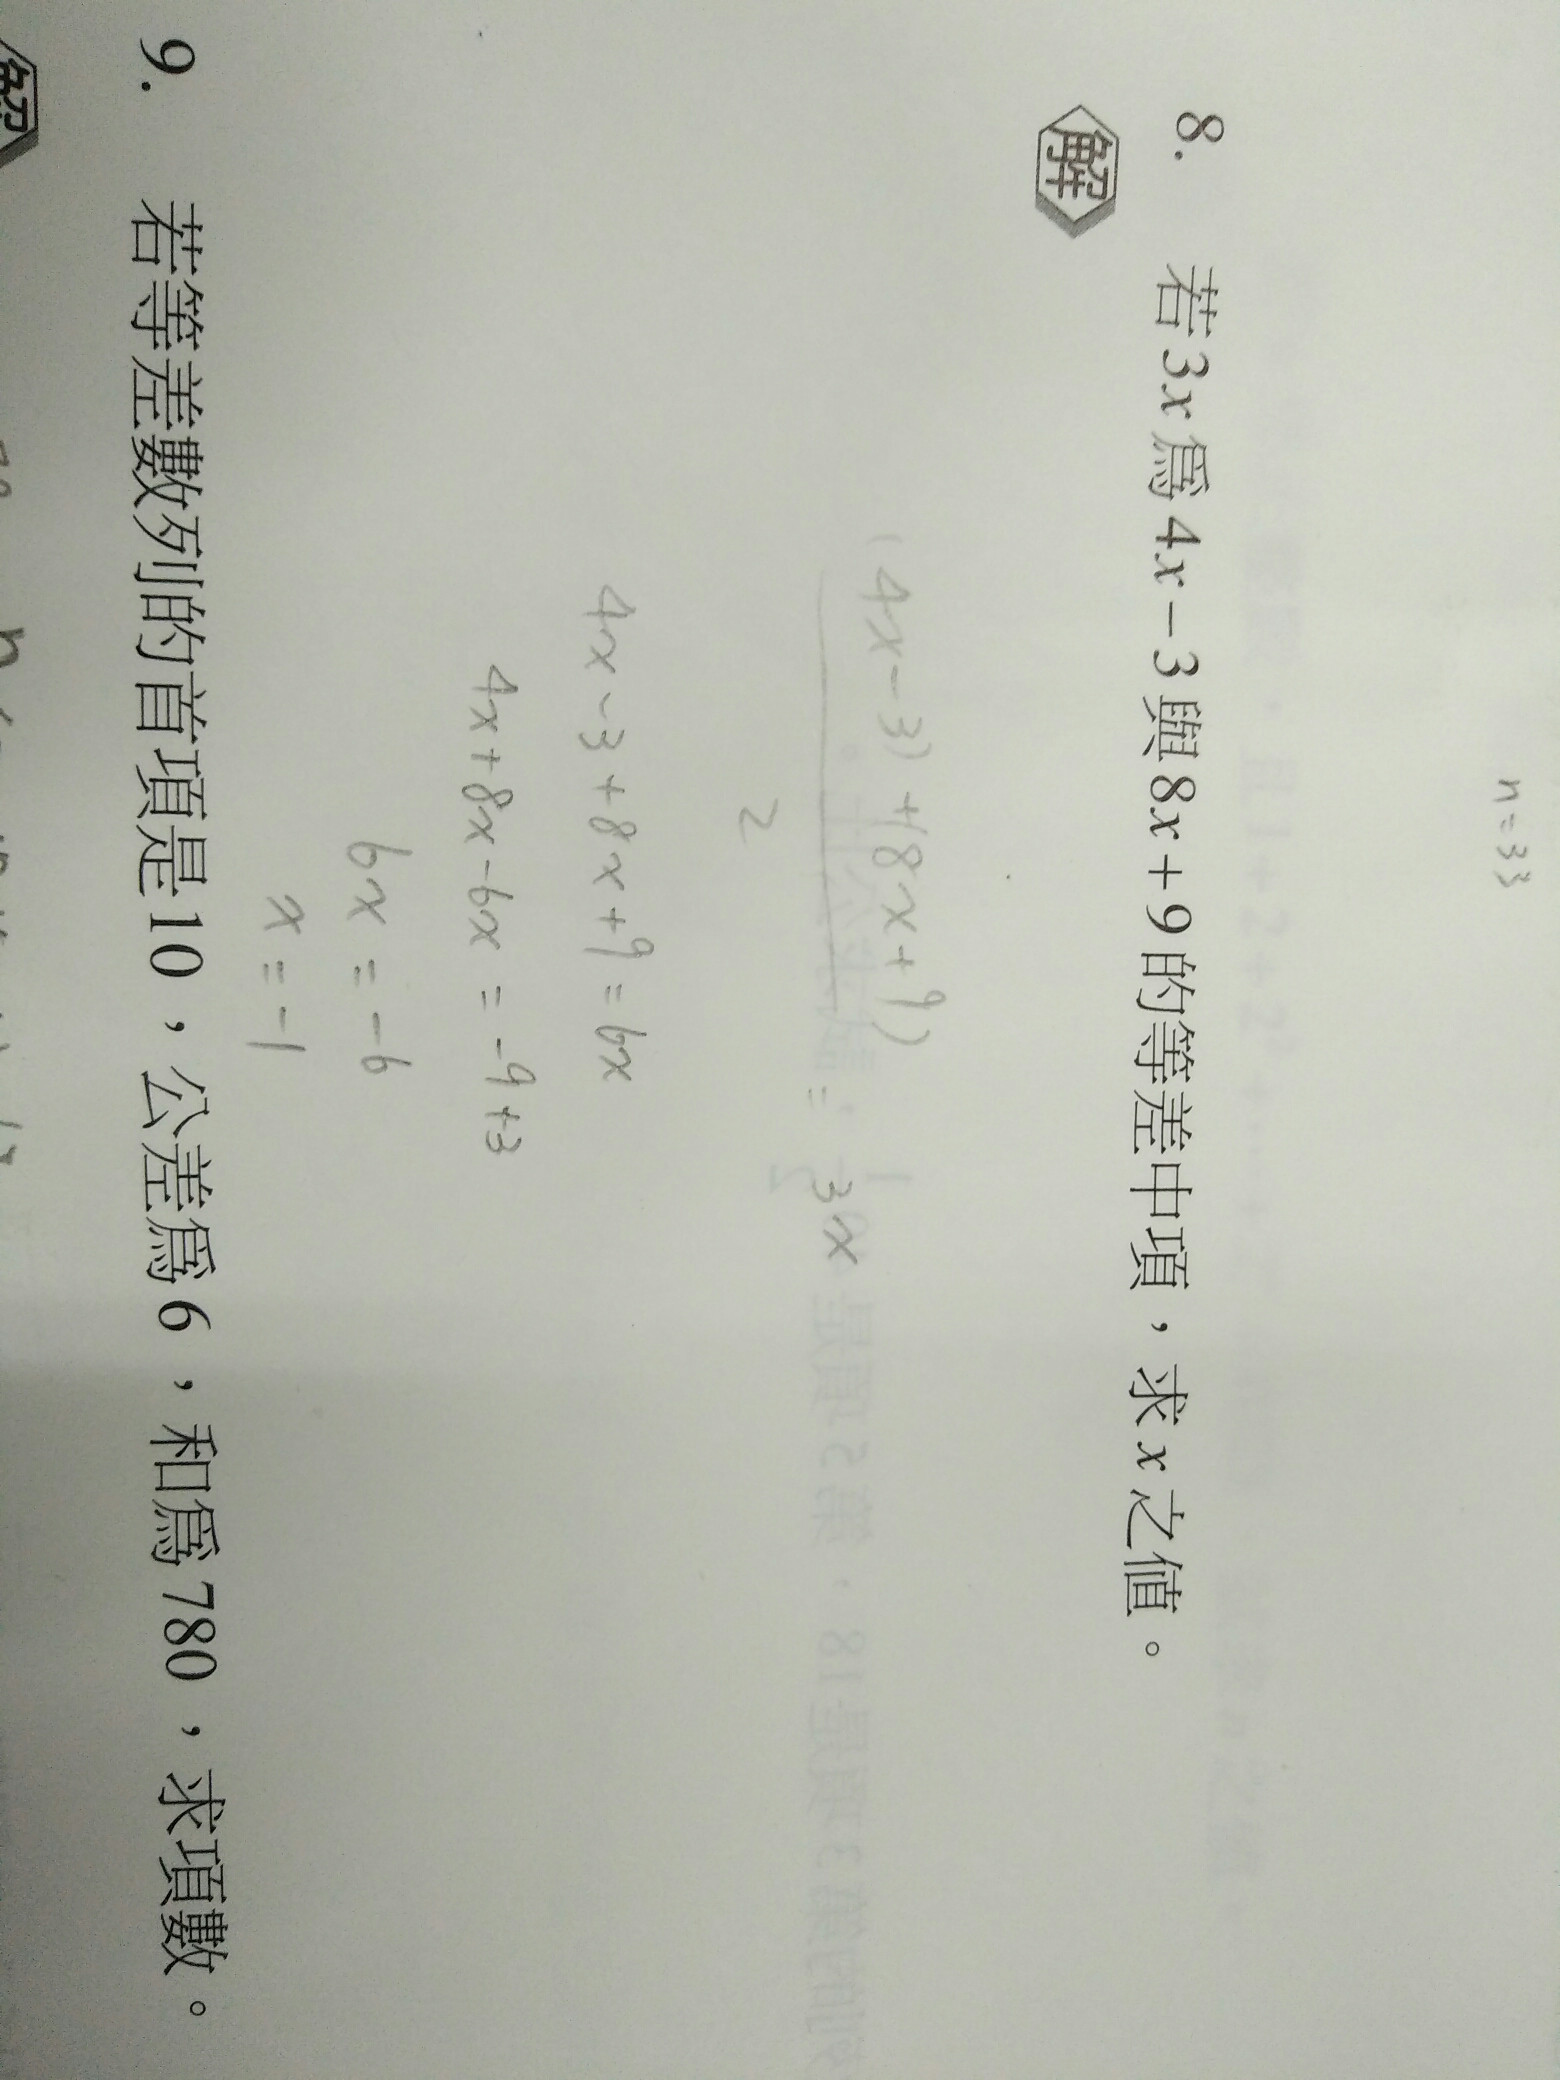 n=33
8. 若3x為4x−3與8x+9的等差中項，求x之值。
解
(4x−3)+(8x+9)
2
=3x
4x−3+8x+9=6x
4x+8x−6x=−9+3
6x=−6
x=−1
9. 若等差數列的首項是10，公差為6，和為780，求項數。
解